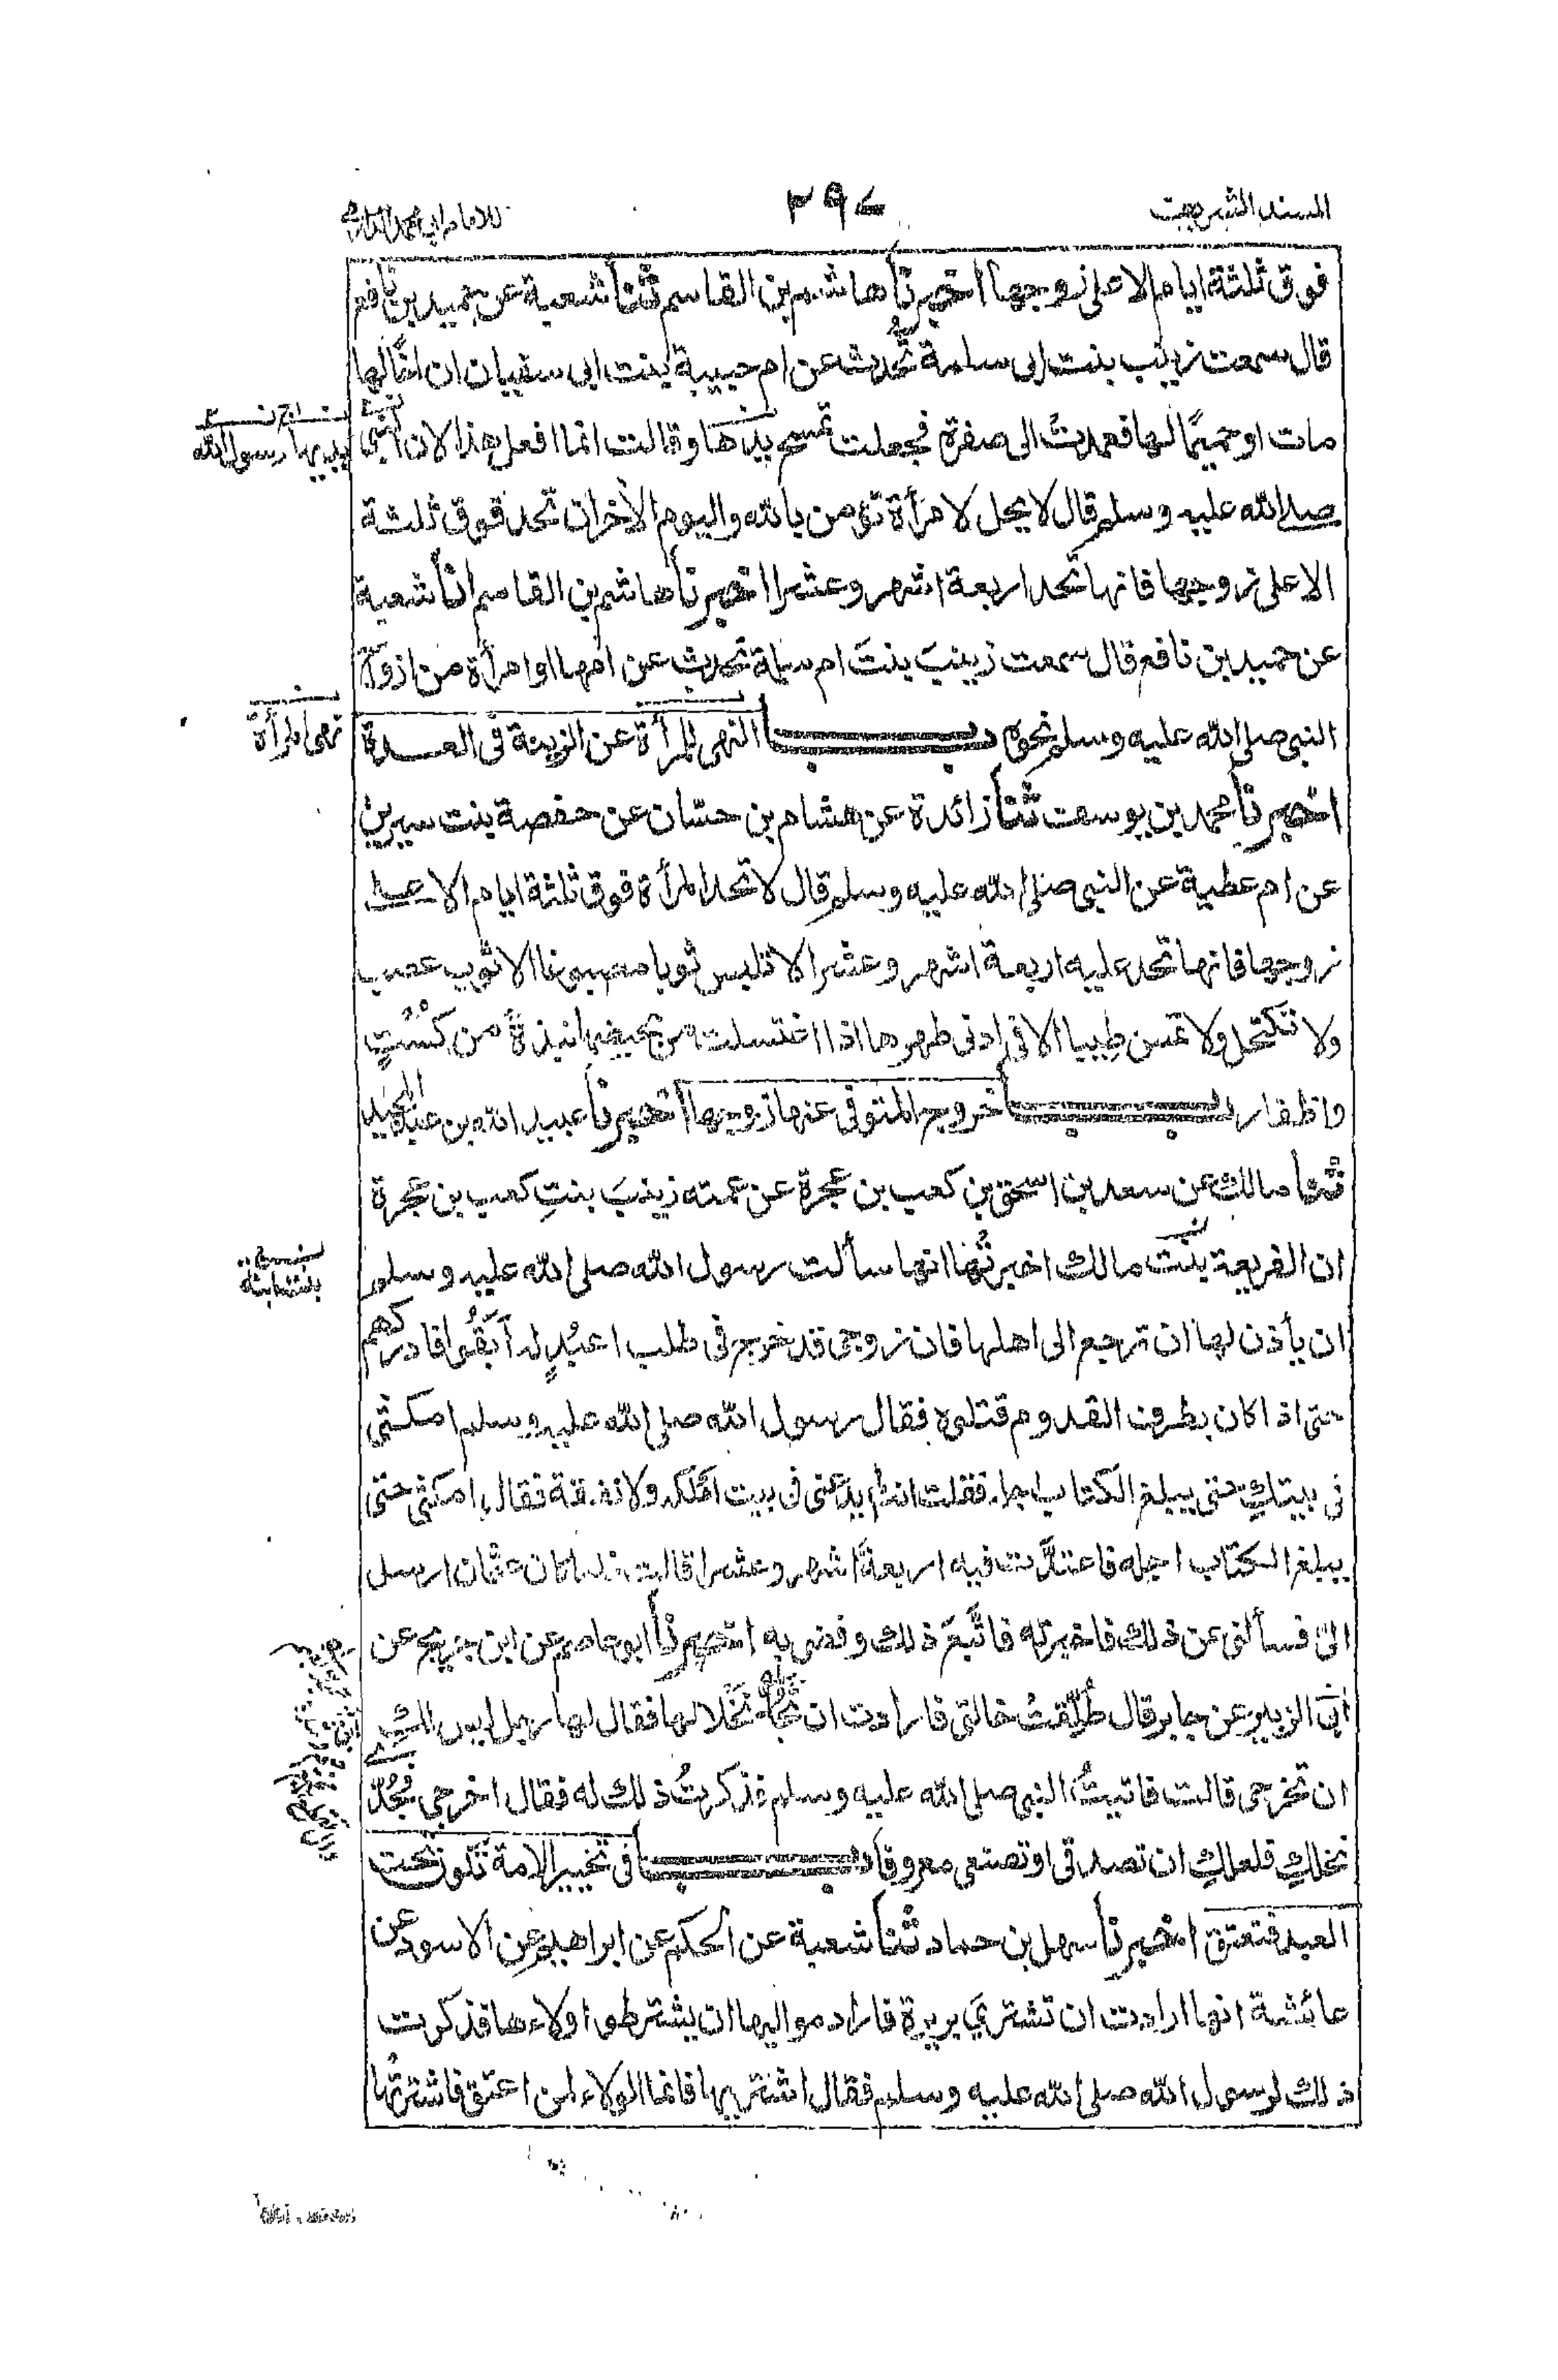 المسند الشريف
٢٩٧
للامام ابي محمد الدارمي
فوق ثلثة ايام الا على زوجها اخبرنا هاشم بن القاسم ثنا شعبة عن حميد بن نافع
قال سمعت زينب بنت ابى سلمة تُحدث عن ام حبيبة بنت ابى سفيان ان اخًا لها
مات او حميمًا لها فعمدت الى صفرة فجعلت تمسح يدَها وقالت انما افعل هذا لان النبى
بيديها رسول الله
صلى الله عليه وسلم قال لا يحل لامرأة تؤمن بالله واليوم الاٰخر ان تحد فوق ثلثة
الا على زوجها فانها تحد اربعة اشهر وعشرا اخبرنا هاشم بن القاسم انا شعبة
عن حميد بن نافع قال سمعت زينبَ بنتَ ام سلمة تحدث عن امها او امرأة من ازواج
النبى صلى الله عليه وسلم نحوه بــاب النهى للمرأة عن الزينة فى العدة
نهى المرأة
اخبرنا محمد بن يوسف ثنا زائدة عن هشام بن حسّان عن حفصة بنت سيرين
عن ام عطية عن النبى صلى الله عليه وسلم قال لا تحد المرأة فوق ثلثة ايام الا على
زوجها فانها تحد عليه اربعة اشهر وعشرا لا تلبس ثوبا مصبوغا الا ثوب عصب
ولا تكتحل ولا تمس طيبا الا فى ادنى طهرها اذا اغتسلت من محيضها نبذةً من كُسْتٍ
واظفار بــاب خروج المتوفى عنها زوجها اخبرنا عبيد الله بن عبد المجيد
ثنا مالك عن سعد بن اسحٰق بن كعب بن عجرة عن عمته زينبَ بنتِ كعب بن عجرة
ان الفريعة بنت مالك اخبرتْها انها سألت رسول الله صلى الله عليه وسلم
ان يأذن لها ان ترجع الى اهلها فان زوجى قد خرج فى طلب اعبُدٍ له اَبَقُوا فادركهم
حتى اذا كان بطرف القدوم قتلوه فقال رسول الله صلى الله عليه وسلم امكثى
فى بيتك حتى يبلغ الكتاب اجله فقلت انه لم يدعنى فى بيت املكه ولا نفقة فقال امكثى حتى
يبلغ الكتاب اجله فاعتدَّت فيه اربعةَ اشهر وعشرا قالت فلما كان عثمان ارسل
الىّ فسألنى عن ذلك فاخبرته فاتَّبَعَ ذلك وقضى به اخبرنا ابو عاصم عن ابن جريج عن
ابى الزبير عن جابر قال طُلِّقَتْ خالتى فارادت ان تَجُدَّ نَخْلا لها فقال لها رجل ليس لك
ان تخرجى قالت فاتيتُ النبى صلى الله عليه وسلم فذكرتُ ذلك له فقال اخرجى فجُدِّى
نخلكِ فلعلكِ ان تصدقى او تصنعى معروفًا بــاب فى تخيير الامة تكون تحت
العبد فتعتق اخبرنا سهل بن حماد ثنا شعبة عن الحكم عن ابراهيم عن الاسود عن
عائشة انها ارادت ان تشترىَ بريرة فاراد مواليها ان يشترطوا ولاءها فذكرت
ذلك لرسول الله صلى الله عليه وسلم فقال اشتريها فانما الولاء لمن اعتق فاشترتْها